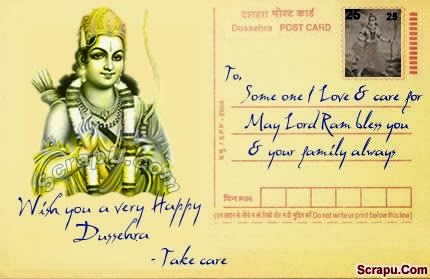 दशहरा पोस्ट कार्ड
Dussehra POST CARD
25 25
To,
Some one I Love & care for
May Lord Ram bless you
& your family always
Scrapu.com
Wish you a very Happy
Dussehra
- Take care
पिन PIN
Do not write or print below this line
Scrapu.Com